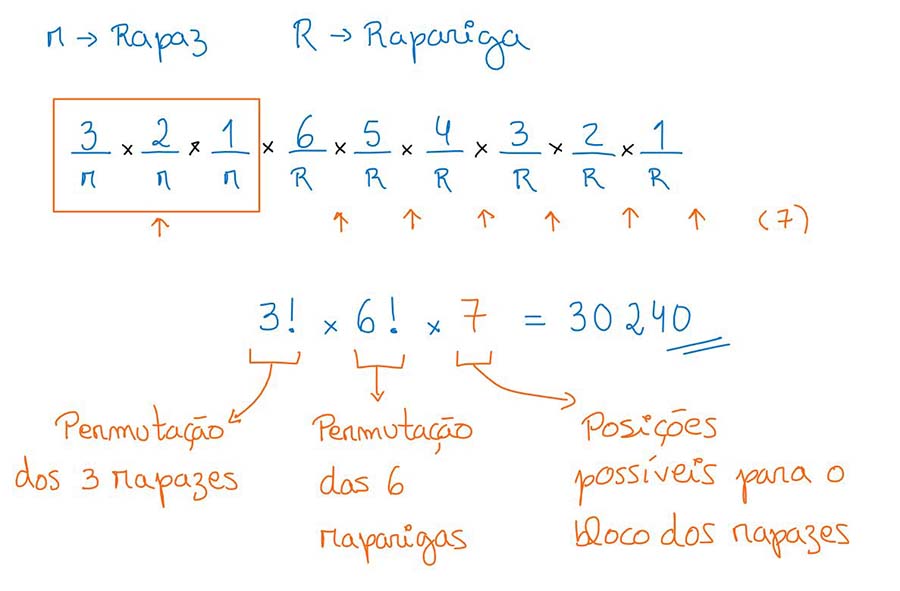 r → Rapaz R → Rapariga
3/r × 2/r × 1/r × 6/R × 5/R × 4/R × 3/R × 2/R × 1/R
↑ ↑ ↑ ↑ ↑ ↑ ↑ (7)
3! × 6! × 7 = 30 240
Permutação dos 3 rapazes
Permutação das 6 raparigas
Posições possíveis para o bloco dos rapazes